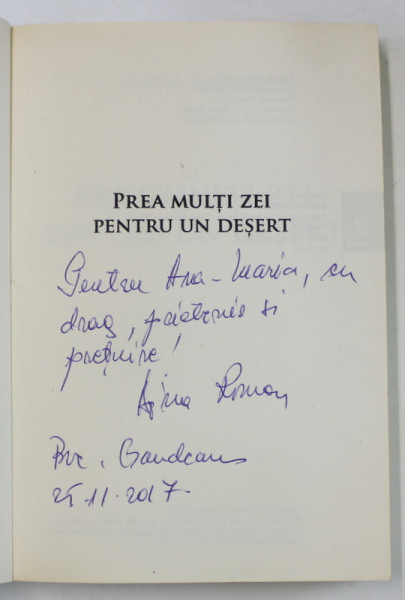 PREA MULȚI ZEI
PENTRU UN DEȘERT
Pentru Ana-Maria, cu
drag, prietenie si
prețuire!
Roman
Buc. Gaudeamus
25.11.2017.